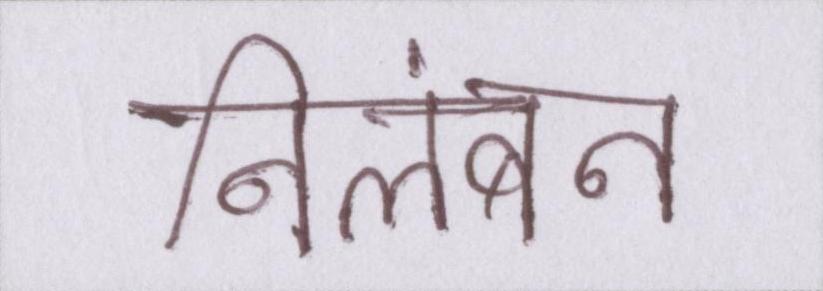 निलंबन